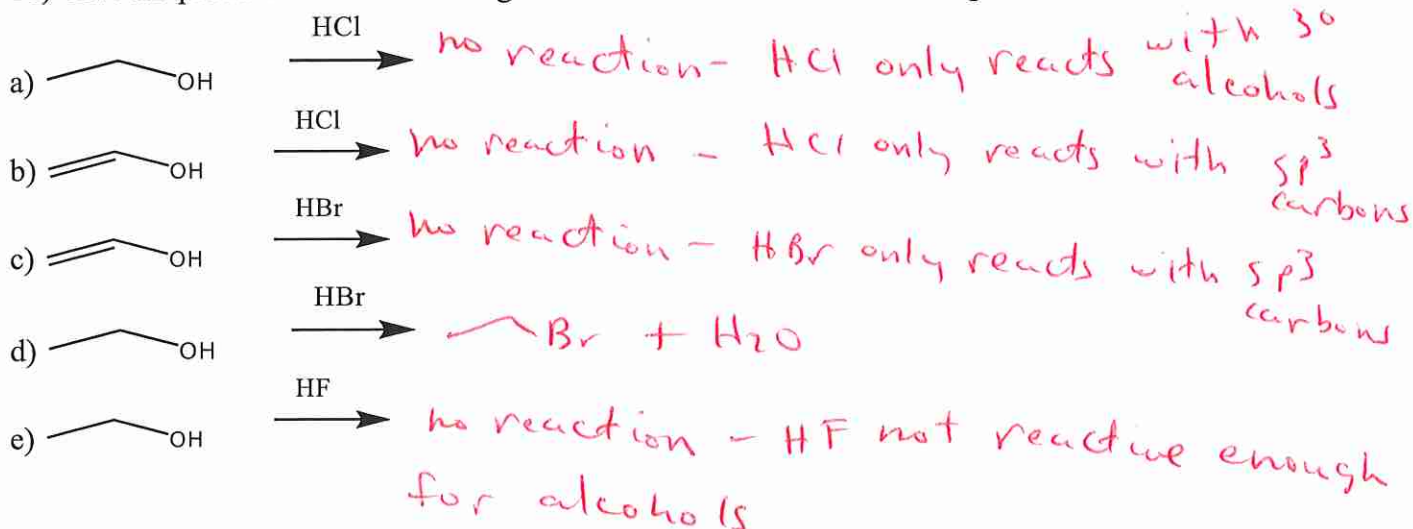 HCl
no reaction - HCl only reacts with 3°
alcohols
a) OH
HCl
no reaction - HCl only reacts with sp3
carbons
b) OH
HBr
no reaction - HBr only reacts with sp3
carbons
c) OH
HBr
Br + H2O
d) OH
HF
no reaction - HF not reactive enough
for alcohols
e) OH